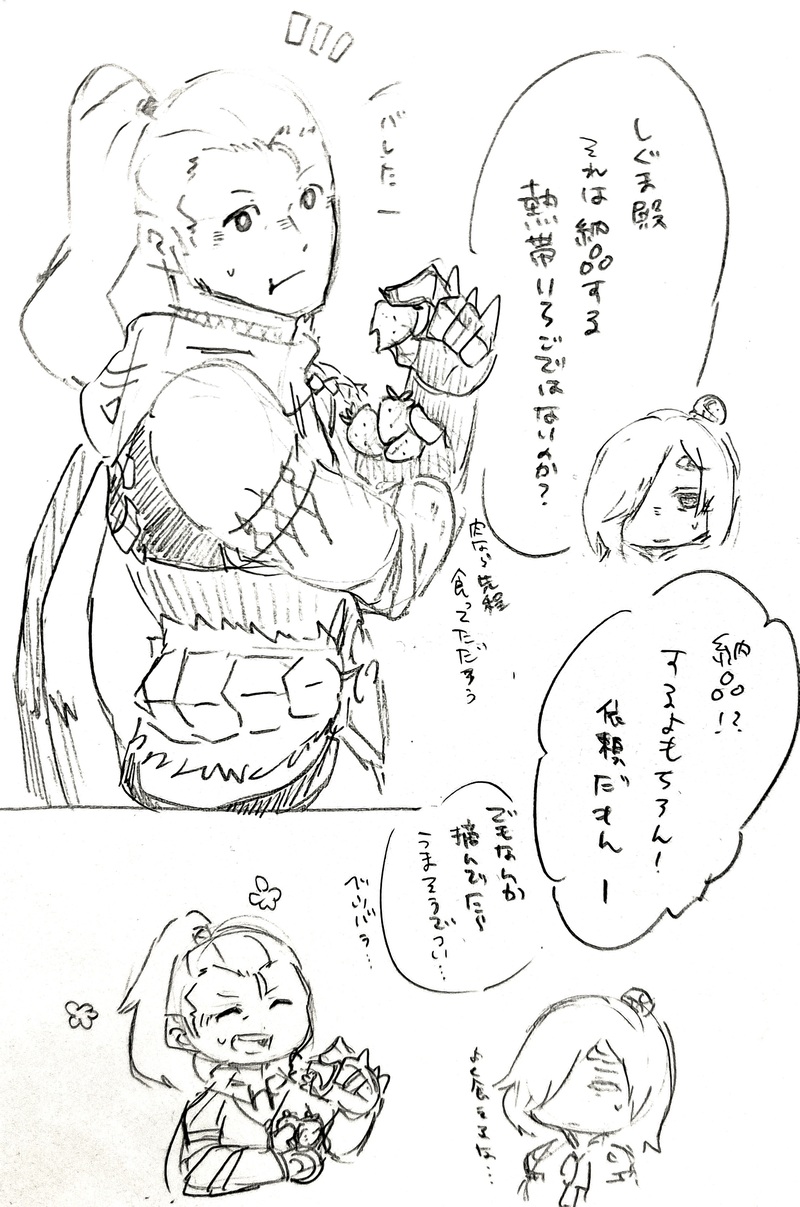 しぐま殿
それは納品する
熱帯いちごではないのか?
バレたー
肉なら先程
食ってただろう
納品!?
するよもちろん!
依頼だもんー
でもなんか
摘んでたら
うまそうでつい…
ベツバラ…
よく食えるな…